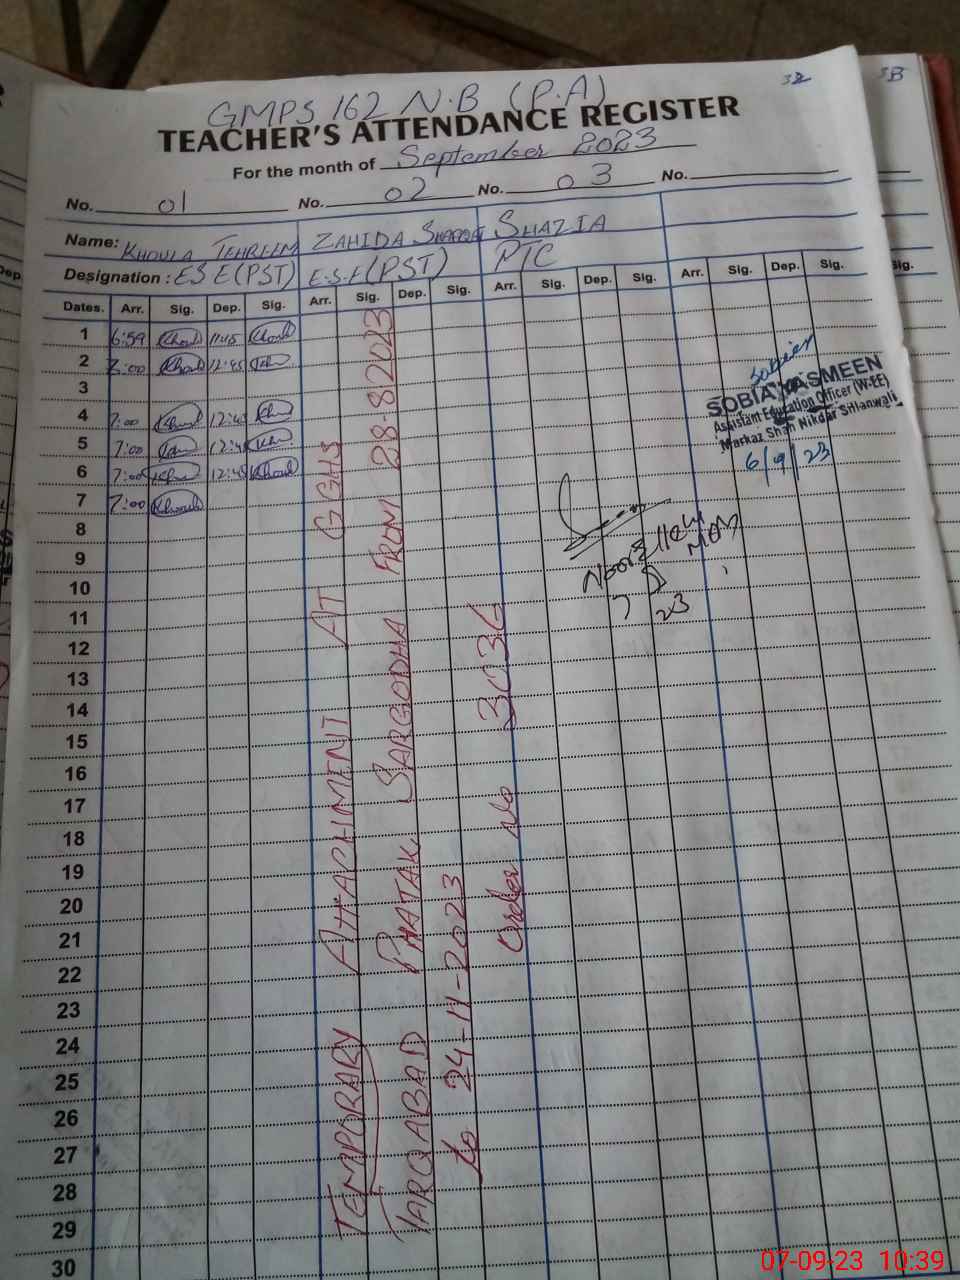 3B
GMPS 162 N.B (P.A)
TEACHER'S ATTENDANCE REGISTER
For the month of September 2023
No. 01 No. 02 No. 03 No.
Name: KHOULA TEHREEM ZAHIDA SHAZIA
Designation : ESE(PST) E.S.E(PST) PTC
Dates. Arr. Sig. Dep. Sig. Arr. Sig. Dep. Sig. Arr. Sig. Dep. Sig. Arr. Sig. Dep. Sig. Sig.
1 6:59 11:45
2 12:45
3
4 7:00
5 7:00
6 7:00 12:45
7 7:00
8
9
10
11
12
13
14
15
16
17
18
19
20
21
22
23
24
25
26
27
28
29
30
TEMPORARY ATTACHMENT AT GGHS
TARQABAD PHATAK SARGODHA FROM 28-8-2023
to 24-11-2023
Order No 3036
SOBIA YASMEEN
Assistant Education Officer (W-EE)
Markaz Shah Nikdar Sillanwali
6/9/23
7
9
23
07-09-23 10:39